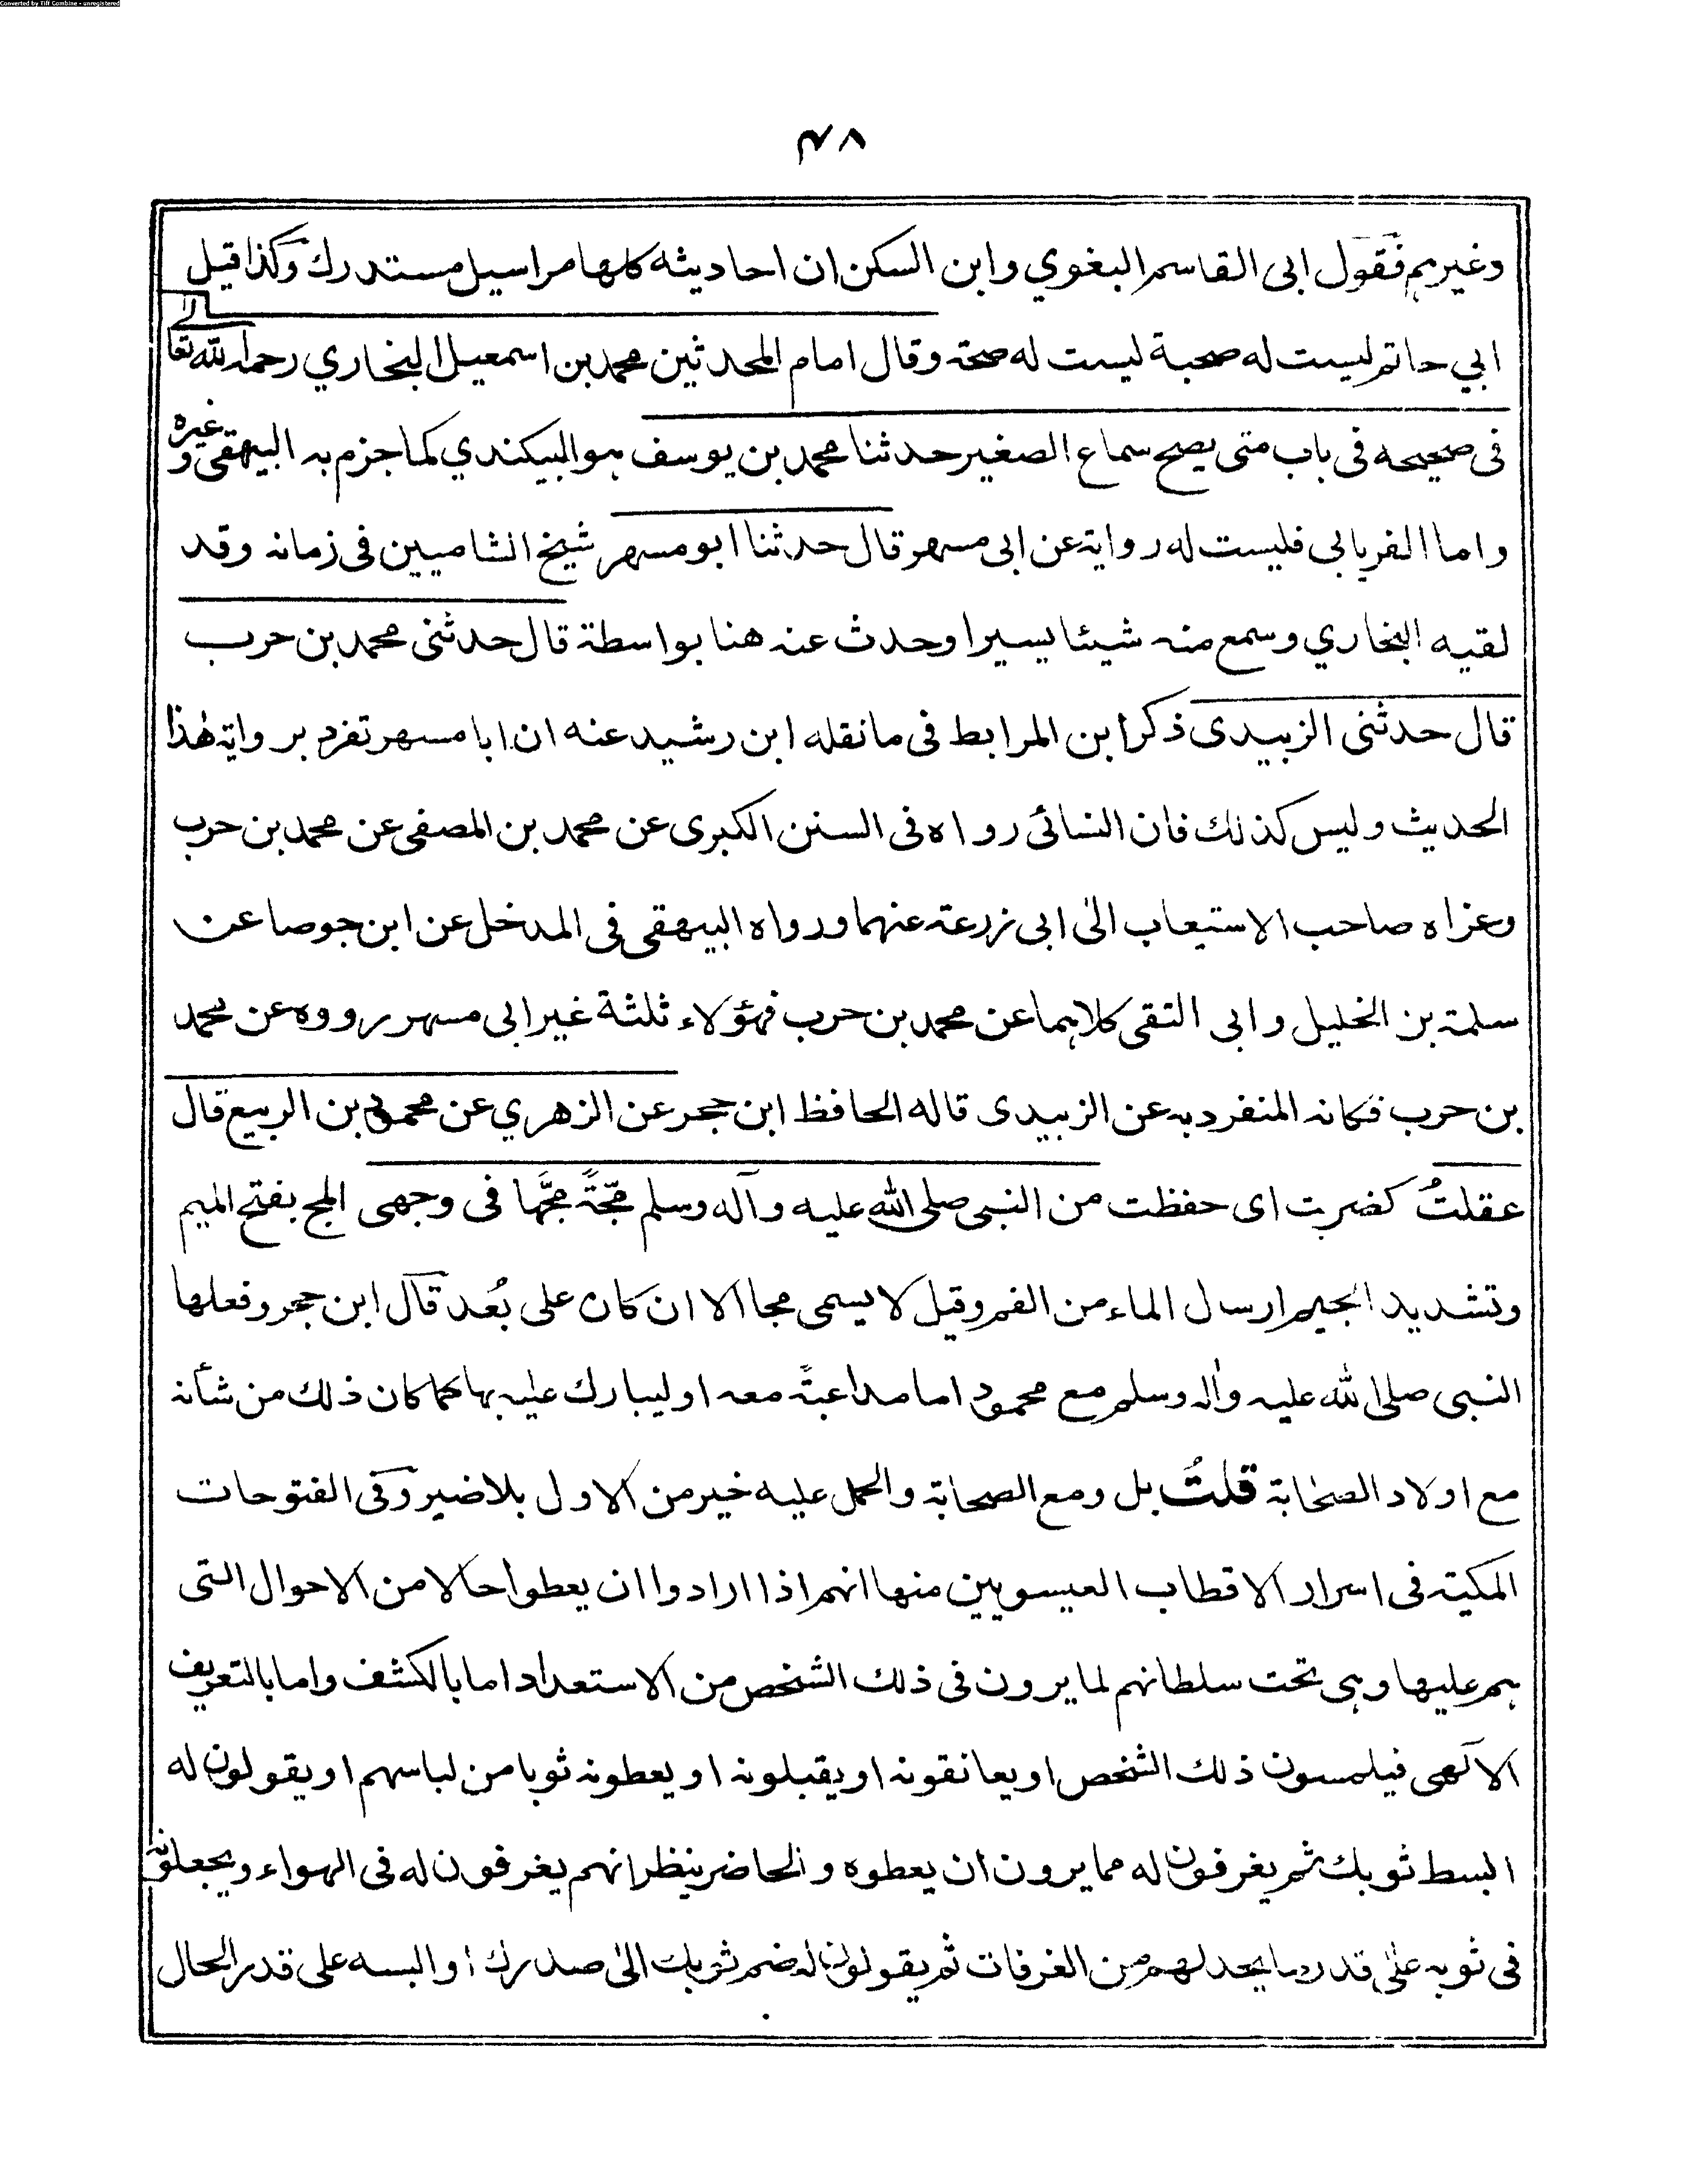 Converted by Tiff Combine - unregistered
٤٨
وغيرهم فقول ابى القاسم البغوي وابن السكن ان احاديثه كلها مراسيل مستدرك وكذا قيل
ابي حاتم ليست له صحبة ليست له صحة وقال امام المحدثين محمد بن اسمعيل البخاري رحمه الله تعالى
فى صحيحه فى باب متى يصح سماع الصغير حدثنا محمد بن يوسف هو البيكندي كما جزم به البيهقى وغيره
واما الفريابى فليست له رواية عن ابى مسهر قال حدثنا ابو مسهر شيخ الشاميين فى زمانه وقد
لقيه البخاري وسمع منه شيئا يسيرا وحدث عنه هنا بواسطة قال حدثنى محمد بن حرب
قال حدثنى الزبيدى ذكر ابن المرابط فى ما نقله ابن رشيد عنه ان ابا مسهر تفرد برواية هٰذا
الحديث وليس كذلك فان النسائى رواه فى السنن الكبرى عن محمد بن المصفى عن محمد بن حرب
وعزاه صاحب الاستيعاب الىٰ ابى زرعة عنهما ورواه البيهقى فى المدخل عن ابن جوصا عن
سلمة بن الخليل وابى التقى كلاهما عن محمد بن حرب فهؤلاء ثلثة غير ابى مسهر رووه عن محمد
بن حرب فكانه المنفرد به عن الزبيدى قاله الحافظ ابن حجر عن الزهري عن محمود بن الربيع قال
عقلتُ كضربت اى حفظت من النبى صلى الله عليه وآله وسلم مجّةً مجَّها فى وجهى المج بفتح الميم
وتشديد الجيم ارسال الماء من الفم وقيل لا يسمى مجا الا ان كان على بُعد قال ابن حجر وفعلها
النبى صلى الله عليه واٰله وسلم مع محمود اما مداعبةً معه او ليبارك عليه بها كما كان ذلك من شأنه
مع اولاد الصحابة قلتُ بل ومع الصحابة والحمل عليه خير من الاول بلا ضير وفى الفتوحات
المكية فى اسرار الاقطاب العيسويين منها انهم اذا ارادوا ان يعطوا حالا من الاحوال التى
هم عليها وهى تحت سلطانهم لما يرون فى ذلك الشخص من الاستعداد اما بالكشف واما بالتعريف
الآلهى فيلمسون ذلك الشخص او يعانقونه او يقبلونه او يعطونه ثوبا من لباسهم او يقولون له
ابسط ثوبك ثم يغرفون له مما يرون ان يعطوه والحاضر ينظر انهم يغرفون له فى الهواء ويجعلونه
فى ثوبه علىٰ قدر ما يحد لهم من الغرفات ثم يقولون له ضم ثوبك الىٰ صدرك او البسه على قدر الحال